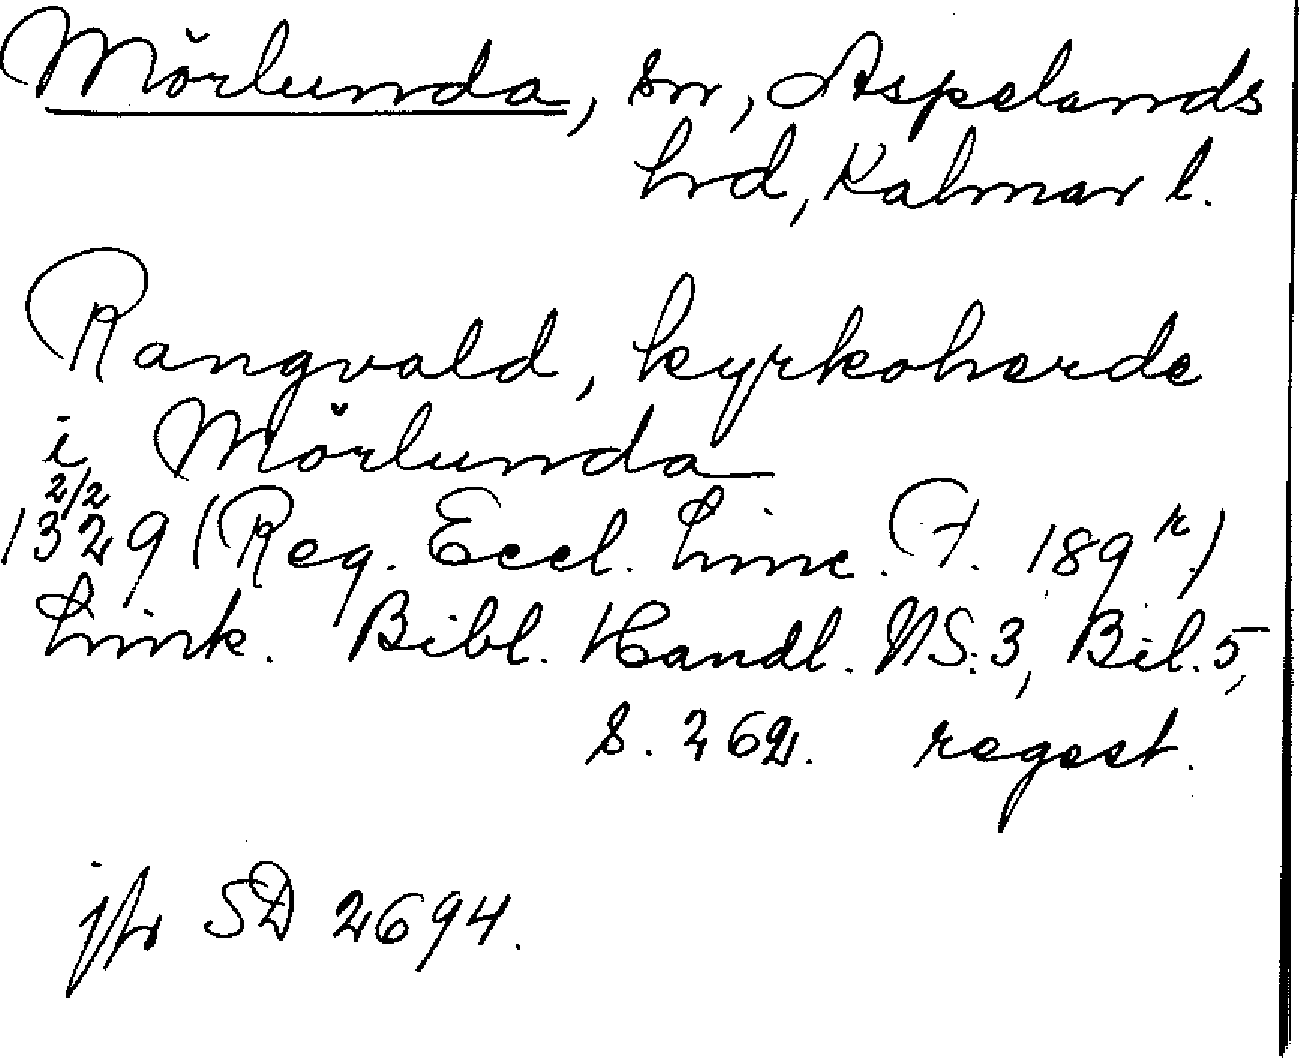 Mörlunda, sn, Aspelands
hrd, Kalmar l.
Rangvald, kyrkoherde
i Mörlunda
2/2
1329 (Reg. Eccl. Linc. F. 189r)
Link. Bibl. Handl. NS. 3, Bil. 5,
s. 262. regest.
jfr SD 2694.